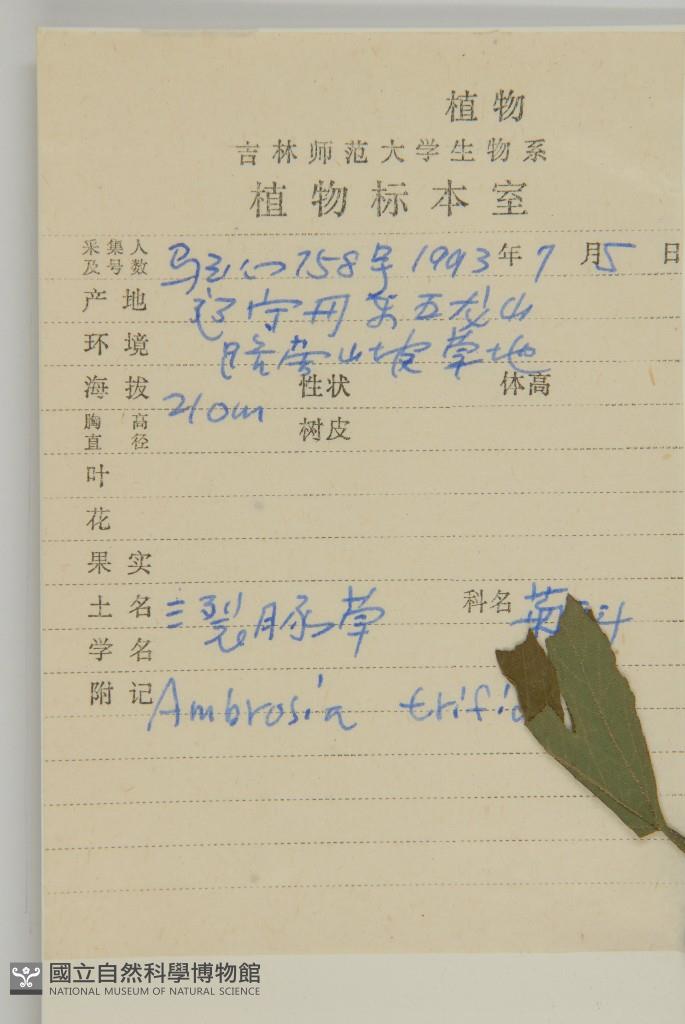 植物
吉林师范大学生物系
植物标本室
采集人及号数 758号 1993年7月5日
产地 辽宁丹东五龙山
环境 山坡草地
海拔 210m 性状 体高
胸高直径 树皮
叶
花
果实
土名 三裂豚草 科名 菊科
学名
附记 Ambrosia trifid
國立自然科學博物館
NATIONAL MUSEUM OF NATURAL SCIENCE